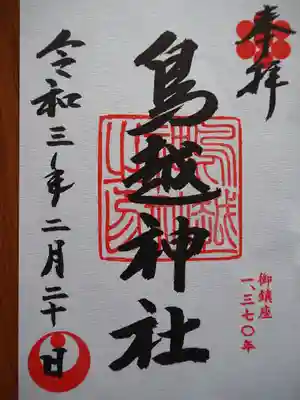 奉拝
鳥越神社
御鎮座
一、三七〇年
令和三年二月二十日